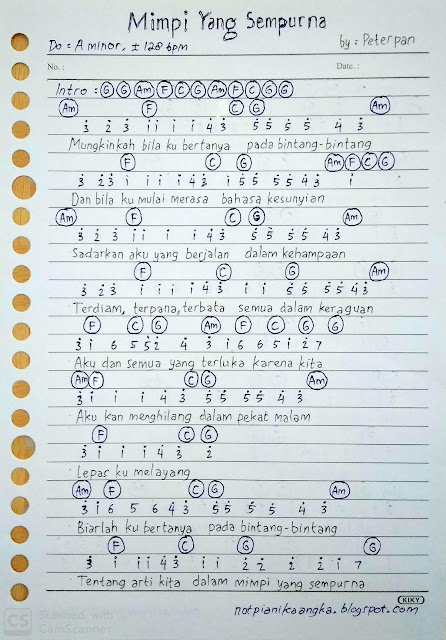 Mimpi Yang Sempurna
Do = A minor, ± 128 bpm
by : Peterpan
No. : Date. :
Intro : G G Am F C G Am F C G G
Am F C G Am
3 2 3 i i i i 4 3 5 5 5 5 4 3
Mungkinkah bila ku bertanya pada bintang-bintang
F C G Am F C G
3 2 3 i i i i 4 3 i 5 5 5 4 3 i
Dan bila ku mulai merasa bahasa kesunyian
Am F C G Am
3 2 3 i i i i 4 3 5 5 5 5 4 3
Sadarkan aku yang berjalan dalam kehampaan
F C G Am
3 2 3 i i i i 4 3 i i 5 5 5 5 4 3
Terdiam, terpana, terbata semua dalam keraguan
F C G Am F C G
3 i 6 5 5 2 4 3 i 6 6 5 i 2 7
Aku dan semua yang terluka karena kita
Am F C G Am
3 i i i 4 3 5 5 5 5 4 3
Aku kan menghilang dalam pekat malam
F C G
3 i i i 4 3 2
Lepas ku melayang
Am F C G Am
3 i 6 5 6 4 3 5 5 5 5 4 3
Biarlah ku bertanya pada bintang-bintang
F C G G
3 i i i 4 3 i i 2 2 2 2 i 7
Tentang arti kita dalam mimpi yang sempurna
KIKY
notpianikaangka.blogspot.com
CS Scanned with
CamScanner